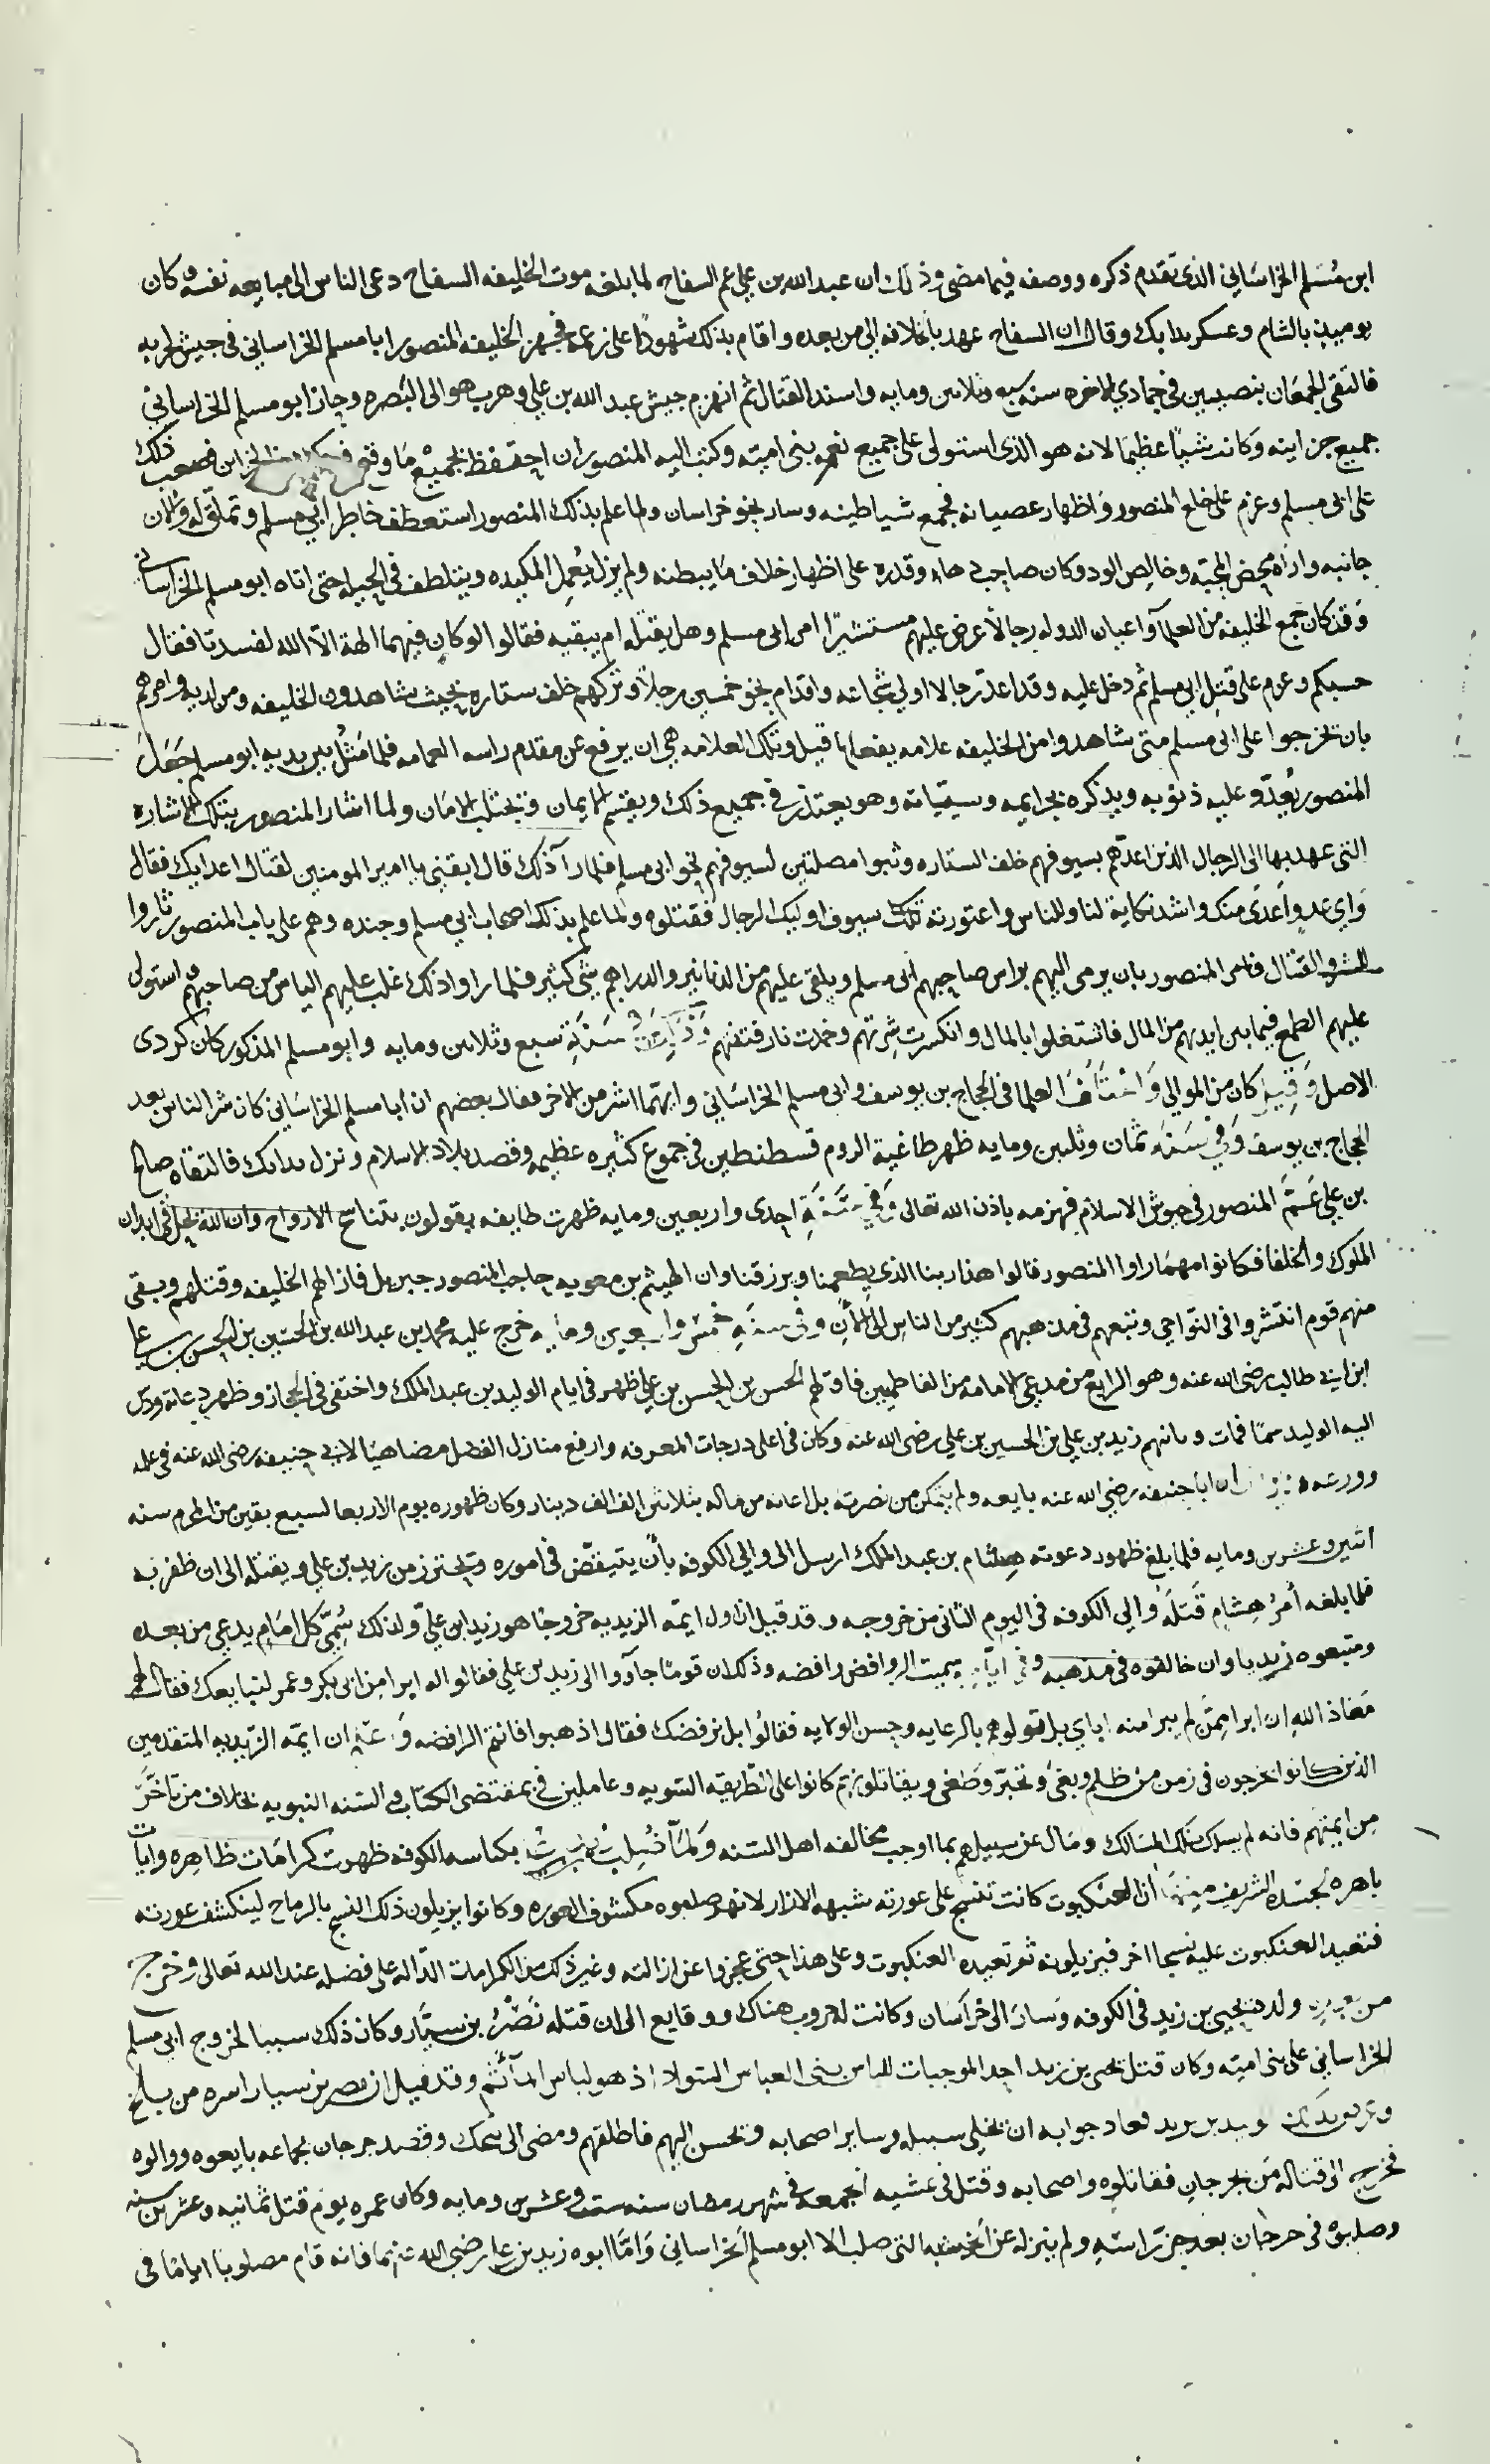 ابن مُسلم الخراساني الذي تقدم ذكره ووصفه فيما مضى وذلك ان عبد الله بن علي عم السفاح لما بلغه موت الخليفه السفاح دعى الناس الى مبايعه نفسه وكان
يوميذ بالشام وعسكر بدابك وقال ان السفاح عهد بالخلافه الي من بعده واقام بذلك شهودًا على زعمه فجهز الخليفه المنصور ابا مسلم الخراساني في جيش لحربه
فالتقى الجمعان بنصيبين في جمادي الاخره سنه سبع وثلاثين ومايه واستد القتال ثم انهزم جيش عبد الله بن علي وهرب هو الى البصره وحاز ابو مسلم الخراساني
جميع خزاينه وكانت شيًا عظيمًا لانه هو الذي استولى على جميع نعم بني اميه وكتب اليه المنصور ان احتفظ بجميع ما وقع فصعب ذلك
على ابى مسلم وعزم على خلع المنصور واظهار عصيانه فجمع شياطينه وسار نحو خراسان ولما علم بذلك المنصور استعطف خاطر ابي مسلم وتملق له والان
جانبه واراه محض المحبه وخالص الود وكان صاحب دهاء وقدره على اظهار خلاف ما يبطنه ولم يزل يُعمل المكيده ويتلطف في الحيله حتى اتاه ابو مسلم الخراساني
وقد كان جمع الخليفه من العلمآ واعيان الدوله رجالاً عرض عليهم مستشيرًا امر ابى مسلم وهل يقتله ام يبقيه فقالوا لو كان فيهما الهة الا الله لفسدتا فقال
حسبكم وعزم على قتل ابي مسلم ثم دخل عليه وقد اعد رجالا اولي شجاعه واقدام نحو خمسين رجلاً وتركهم خلف ستاره بحيث يشاهدون الخليفه ومن لديه وامرهم
بان يخرجوا على ابى مسلم متى شاهدوا من الخليفه علامه يفعلها قيل وتلك العلامه هي ان يرفع عن مقدم راسه العمامه فلما مَثُل بين يديه ابو مسلم جَعَل
المنصور يُعدّد عليه ذنوبه ويذكره بجرايمه وسيّياته وهو يعتذر في جميع ذلك ويقسم الايمان ويختلب الامان ولما اشار المنصور بتلك الاشاره
التى عهد بها الى الرجال الذين اعدّهم بسيوفهم خلف الستاره وثبوا مصلتين لسيوفهم نحو ابى مسلم فلما رآ ذلك قال ابقني يا امير المومنين لقتال اعدايك فقال
واي عدو اعدى منك واشد نكاية لنا وللناس واعتورته تلك سيوف اوليك الرجال فقتلوه ولما علم بذلك اصحاب ابي مسلم وجنده وهم على باب المنصور ثاروا
للشر والقتال فامر المنصور بان يرمى اليهم براس صاحبهم ابى مسلم ويلقى عليهم من الدنانير والدراهم شى كثير فلما راوا ذلك غلب عليهم الياس من صاحبهم واستولى
عليهم الطمع فيما بين ايديهم من المال فاشتغلوا بالمال وانكسرت شرتهم وخمدت نار فتنهم وَذَلِكَ فِي سَنَةِ سبع وثلاثين ومايه وابو مسلم المذكور كان كردي
الاصل وَقِيلَ كان من الموالي وَاخْتَلَفَ العلما في الحجاج بن يوسف وابى مسلم الخراساني وايهما اشر من الاخر فقال بعضهم ان ابا مسلم الخراسانى كان شر الناس بعد
الحجاج بن يوسف وَفِي سَنَه ثمان وثلثين ومايه ظهر طاغية الروم قسطنطين في جموع كثيره عظيمه وقصد بلاد الاسلام ونزل بدابك فالتقاه صالح
بن علي عَم المنصور في جيوش الاسلام فهزمه باذن الله تعالى وَفِي سَنَةِ احدى واربعين ومايه ظهرت طايفه يقولون بتناسخ الارواح وان الله يحل في ابدان
الملوك والخلفا فكانوا مهما راوا المنصور قالوا هذا ربنا الذي يطعمنا ويرزقنا وان الهيثم بن معويه حاجب المنصور جبريل فازالهم الخليفه وقتلهم وبقى
منهم قوم انتشروا في النواحي وتبعهم في مذهبهم كثير من الناس الى الآن وفي سنه خمس واربعين ومايه خرج عليه محمد بن عبد الله بن الحسين بن الحسن بن علي
ابن ابي طالب رضى الله عنه وهو الرابع من مدعي الامامه من الفاطميين فاولهم الحسن بن الحسن بن علي ظهر في ايام الوليد بن عبد الملك واختفى في الحجاز وظهر دعاته ودس
اليه الوليد سمًا فمات وثانيهم زيد بن علي بن الحسين بن علي رضى الله عنه وكان في اعلى درجات المعرفه وارفع منازل الفضل مضاهيًا لابي حنيفه رضى الله عنه في علمه
وورعه ان ابا حنيفه رضي الله عنه بايعه ولم يتمكن من نصرته بل اعانه من ماله بثلاثين الف الف دينار وكان ظهوره يوم الاربعا لسبع بقين من المحرم سنه
اثنين وعشرين ومايه فلما بلغ ظهور دعوته هشام بن عبد الملك ارسل الى والي الكوفه بأن يتيقض في اموره ويحترز من زيد بن علي ويقتله الى ان ظفر به
فلما بلغه أمرُ هِشام قَتَلَهُ والي الكوفه في اليوم الثانى من خروجه وقد قيل ان اول ايمه الزيديه خروجًا هو زيد ابن علي ولذلك سُمِّي كل امام يدعي من بعده
ومتبعوه زيديا وان خالفوه في مذهبه وفي ايامه سميت الروافض رافضه وذلك ان قومًا جآووا الى زيد بن علي فقالوا له ابرا من ابى بكر وعمر لنبايعك فقال لهم
معَاذ اللهِ ان ابرا ممن لم يبرا منه اباي بل تولوهم بالرعايه وحسن الولايه فقالوا بل نرفضك فقال اذهبوا فانتم الرافضه ان ايمه الزيديه المتقدمين
الذين كانوا يخرجون في زمن من ظلم وبغى وتجبرّ وطغى ويقاتلونهم كانوا على الطريقه السويه وعاملين في بمقتضى الكتاب السنه النبويه بخلاف من تاخّر
من ايمتهم فانه لم يسلك تلك المسالك ومال عن سبيلهم بما اوجب مخالفه اهل السنه وَلمّا صُلِبَ بكناسه الكوفه ظهرت كرامات ظاهره وايات
باهره لجسده الشريف مِنها ان العنكبوت كانت تنسج على عورته شبهه الازار لانهم صلبوه مكشوف العوره وكانوا يزيلون ذلك النسج بالرماح لينكشف عورته
فتعيد العنكبوت عليه نسجا اخر فيزيلونه ثم تعيده العنكبوت وعلى هذا حتى عجزوا عن ازالته وغير ذلك من الكرامات الدّاله على فضله عند الله تعالى وخرج
من بعده ولده يحيى بن زيد في الكوفه وسار الى خراسان وكانت له حروب هناك ووقايع الى ان قتله نَصْرُ بن سيّار وكان ذلك سببا لخروج ابى مسلم
الخراساني على بنى اميه وكان قتل يحيى بن زيد احد الموجبات للباس بنى العباس السواد اذ هو لباس المآتم وقد قيل ان نصر بن سيار اسره من بلخ
بن يزيد فعاد جوابه ان يخلي سبيله وساير اصحابه ويحسن اليهم فاطلقهم ومضى الى وقصد جرجان بجماعه بايعوه ووالوه
فخرج الى قتاله من بجرجان فقاتلوه واصحابه وقتل في عشيه الجمعه في شهر رمضان سنه ست وعشرين ومايه وكان عمره يوم قتل ثمانيه وعشرين سنه
وصلبوه في جرجان بعد حزّ راسه ولم ينزله عن الخشبه التى صلب الا ابو مسلم الخراساني وَامّا ابوه زيد بن علي رضي الله عنهما فانه قام مصلوبا اياما في